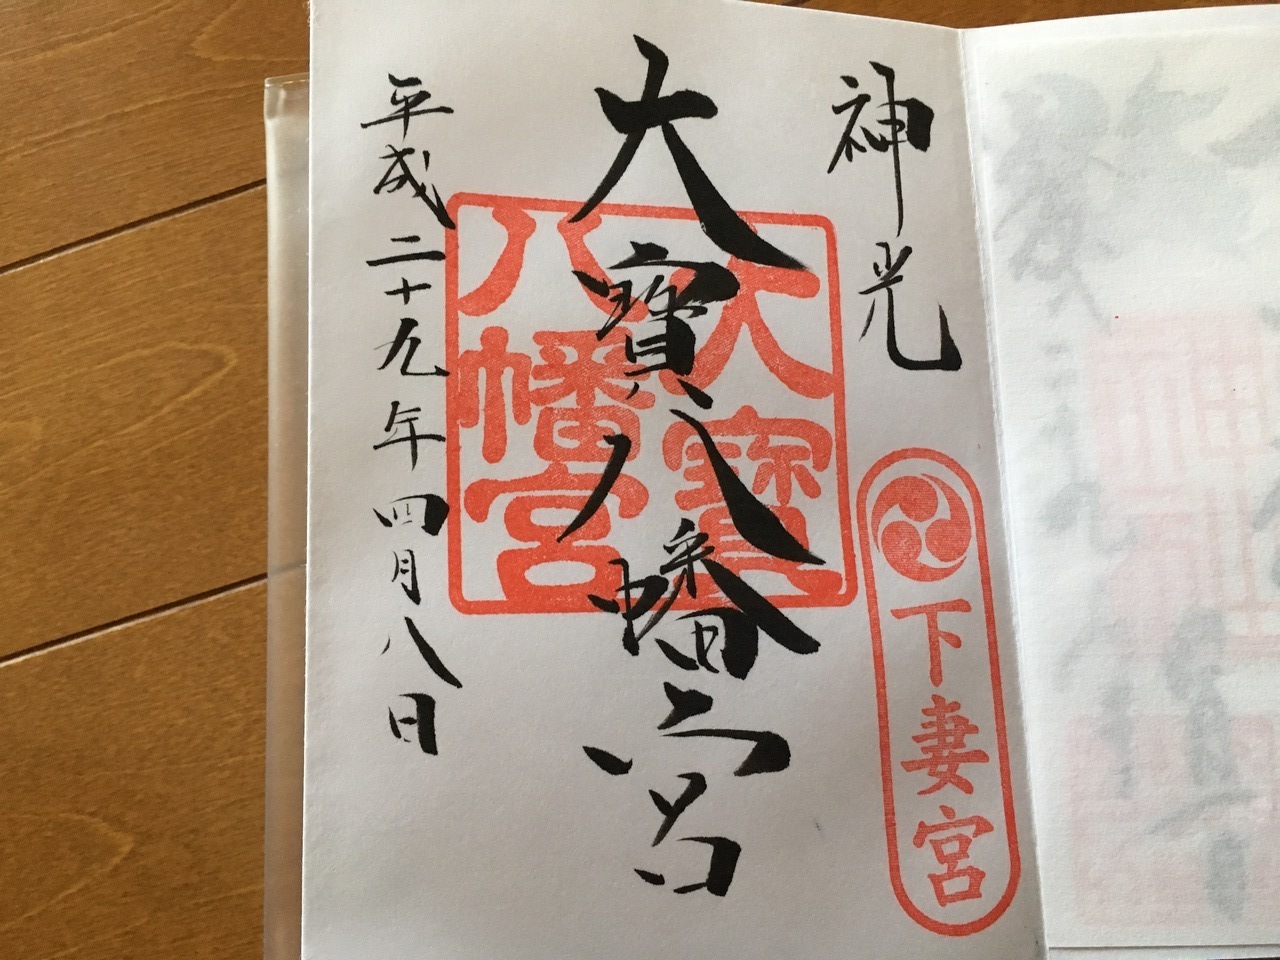 神光
下妻宮
大寶八幡宮
大寶
八幡宮
平成二十九年四月八日